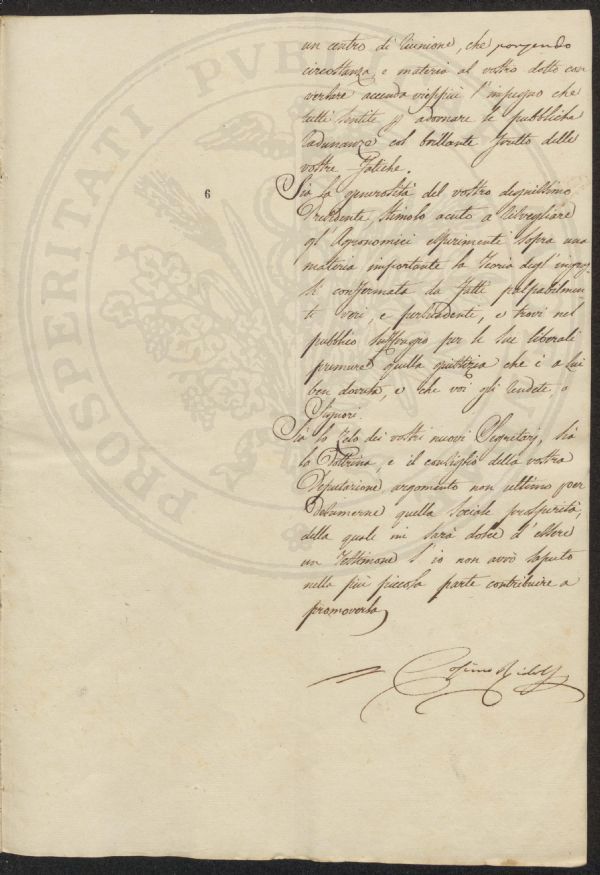 un centro di riunione, che porgendo
circostanza, e materia al vostro dotto con
versare accenda vieppiù l'impegno che
tutti sentite p adornare le pubbliche
radunanze col brillante frutto delle
vostre fatiche.
6
Sia la generosità del vostro degnissimo
Presidente, stimolo acuto a risvegliare
gl'Agronomici esperimenti sopra una
materia importante la Teoria degl'ingras
si confermata da fatti palpabilmen
te veri, e persuadenti, e trovi nel
pubblico suffragio per le sue liberali
premure quella giustizia che è a lui
ben dovuta, e che voi gli rendete, o
Signori.
Sia lo zelo dei vostri nuovi Segretarj, sia
la Dottrina, e il consiglio della vostra
Deputazione argomento non ultimo per
desumerne quella sociale prosperità,
della quale mi sarà dolce d'essere
un Testimone s'io non avrò saputo
nella più piccola parte contribuire a
promoverla
Cosimo Ridolfi
PROSPERITATI PVBLICAE